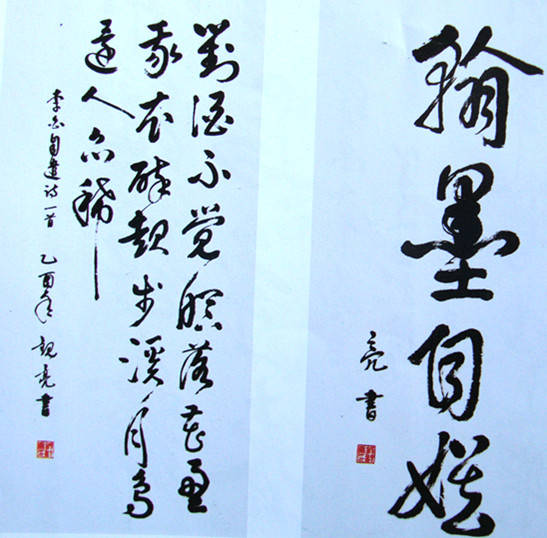 翰墨自娱
亮書
對酒不覺暝落花盈
我衣醉起步溪月鳥
還人亦稀
李白自遣诗一首 乙酉年 亮書